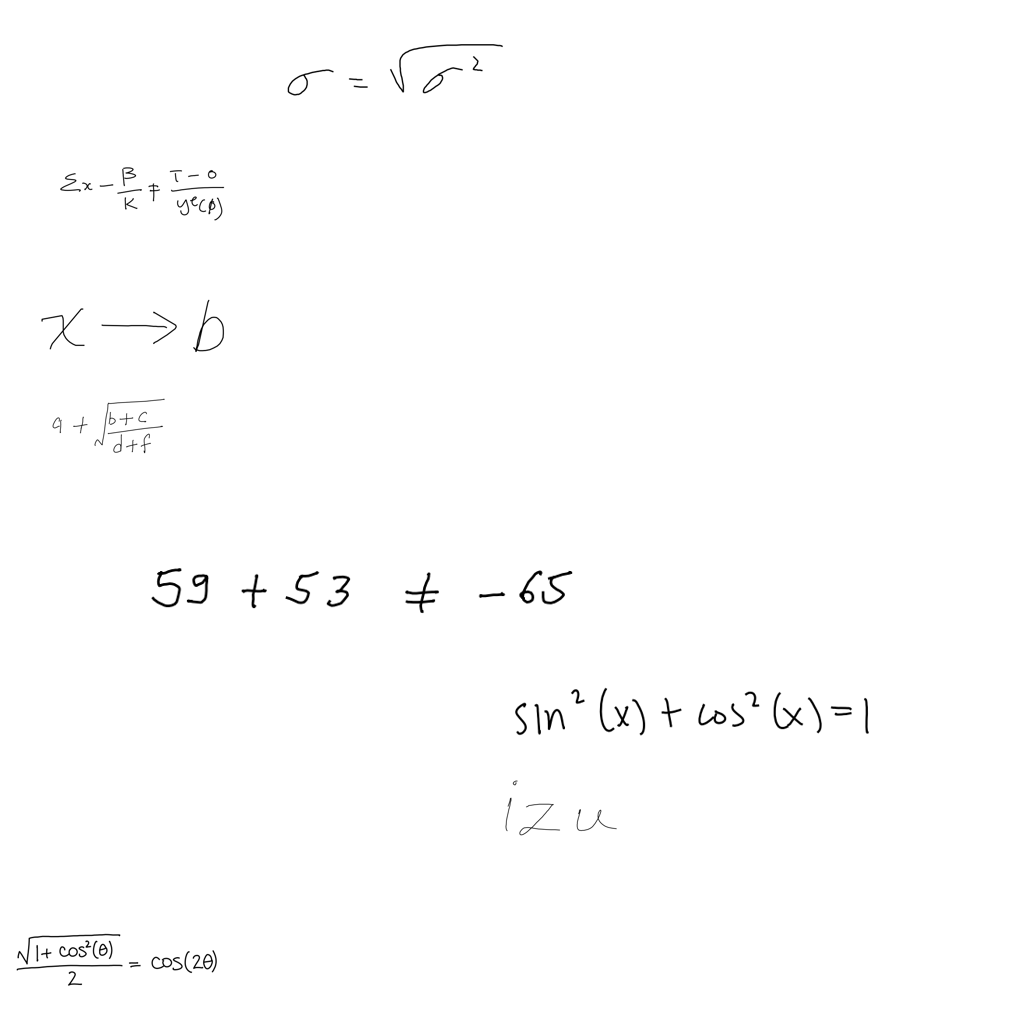 σ = √(σ²)
Σx - β/K ≠ (T - 0)/(y^e(φ))
x → b
a + √((b+c)/(d+f))
59 + 53 ≠ -65
sin²(x) + cos²(x) = 1
izu
√(1 + cos²(θ))/2 = cos(2θ)